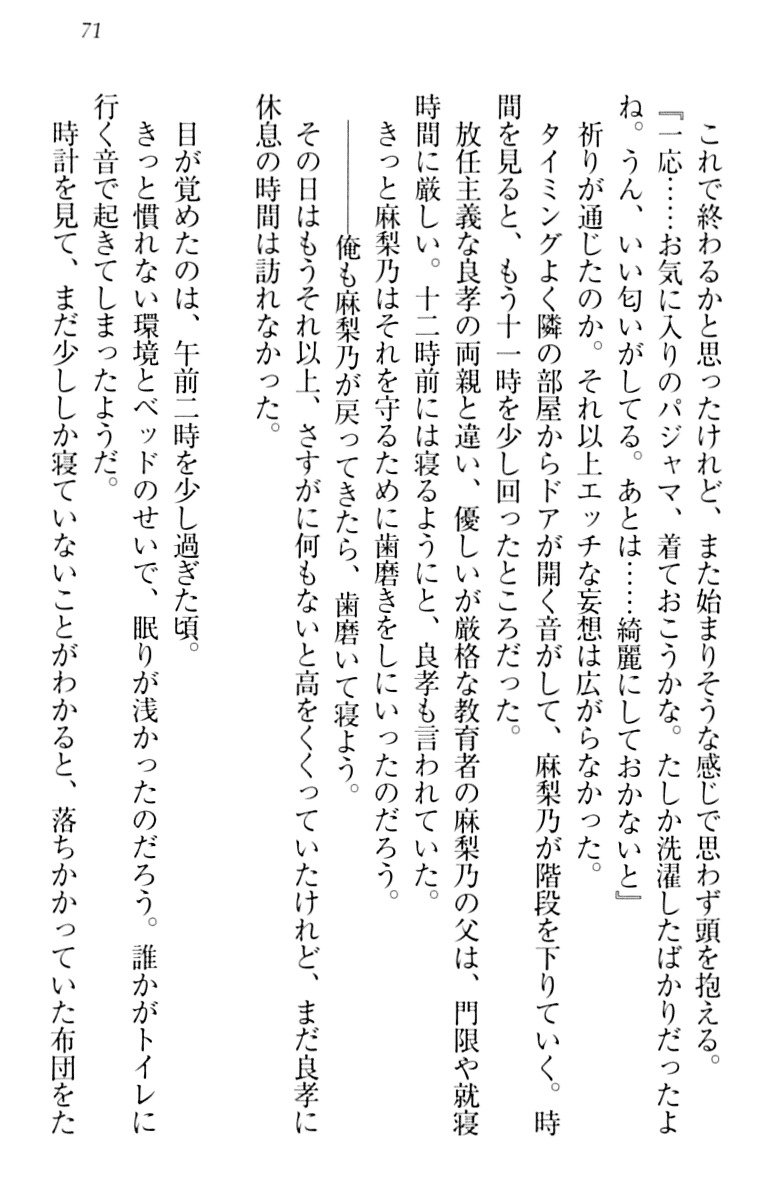 71
これで終わるかと思ったけれど、また始まりそうな感じで思わず頭を抱える。
『一応……お気に入りのパジャマ、着ておこうかな。たしか洗濯したばかりだったよ
ね。うん、いい匂いがしてる。あとは……綺麗にしておかないと』
祈りが通じたのか。それ以上エッチな妄想は広がらなかった。
タイミングよく隣の部屋からドアが開く音がして、麻梨乃が階段を下りていく。時
間を見ると、もう十一時を少し回ったところだった。
放任主義な良孝の両親と違い、優しいが厳格な教育者の麻梨乃の父は、門限や就寝
時間に厳しい。十二時前には寝るようにと、良孝も言われていた。
きっと麻梨乃はそれを守るために歯磨きをしにいったのだろう。
――――俺も麻梨乃が戻ってきたら、歯磨いて寝よう。
その日はもうそれ以上、さすがに何もないと高をくくっていたけれど、まだ良孝に
休息の時間は訪れなかった。
目が覚めたのは、午前二時を少し過ぎた頃。
きっと慣れない環境とベッドのせいで、眠りが浅かったのだろう。誰かがトイレに
行く音で起きてしまったようだ。
時計を見て、まだ少ししか寝ていないことがわかると、落ちかかっていた布団をた